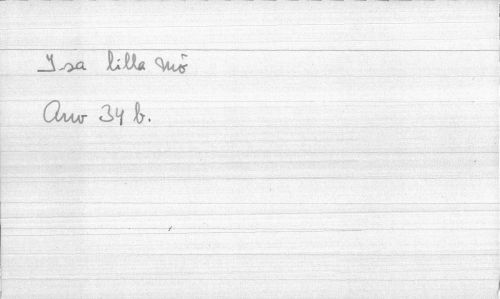 Isa lilla mö
Arw 34 b.